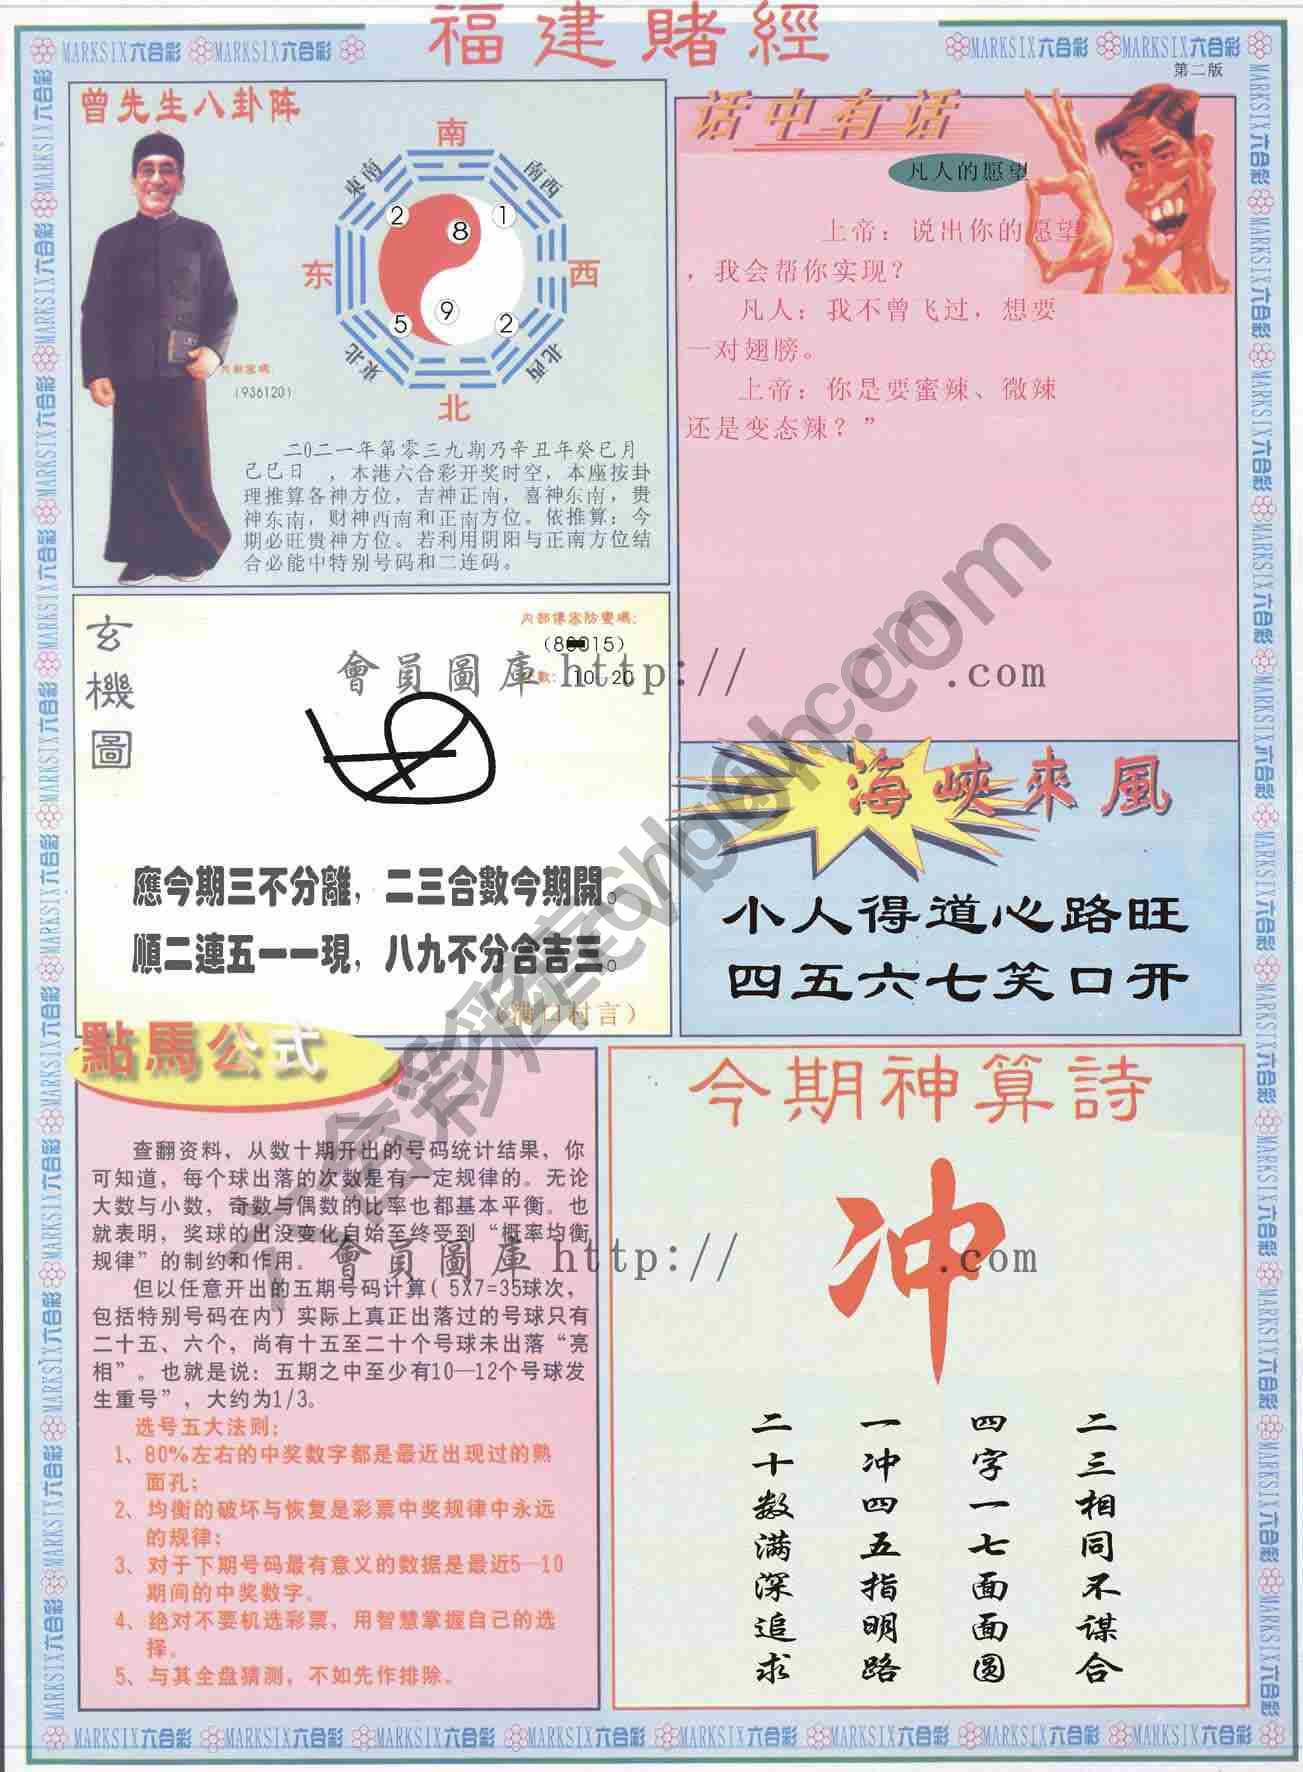 福建賭經
MARKSIX六合彩 MARKSIX六合彩
MARKSIX六合彩 MARKSIX六合彩
第二版
曾先生八卦阵
南
東南
南西
2
8
1
东
西
5
9
2
東北
北西
北
(936120)
二O二一年第零三九期乃辛丑年癸巳月
己巳日 ，本港六合彩开奖时空，本座按卦
理推算各神方位，吉神正南，喜神东南，贵
神东南，财神西南和正南方位。依推算：今
期必旺贵神方位。若利用阴阳与正南方位结
合必能中特别号码和二连码。
话中有话
凡人的愿望
上帝：说出你的愿望
，我会帮你实现？
凡人：我不曾飞过，想要
一对翅膀。
上帝：你是要蜜辣、微辣
还是变态辣？”
玄機圖
10、20
會員圖庫 http:// .com
應今期三不分離，二三合數今期開。
順二連五一一現，八九不分合吉三。
海峽來風
小人得道心路旺
四五六七笑口开
點馬公式
查翻资料，从数十期开出的号码统计结果，你
可知道，每个球出落的次数是有一定规律的。无论
大数与小数，奇数与偶数的比率也都基本平衡。也
就表明，奖球的出没变化自始至终受到“概率均衡
规律”的制约和作用。
會員圖庫 http:// .com
但以任意开出的五期号码计算( 5X7=35球次，
包括特别号码在内）实际上真正出落过的号球只有
二十五、六个，尚有十五至二十个号球未出落“亮
相”。也就是说：五期之中至少有10—12个号球发
生重号”，大约为1/3。
选号五大法则：
1、80%左右的中奖数字都是最近出现过的熟
面孔；
2、均衡的破坏与恢复是彩票中奖规律中永远
的规律；
3、对于下期号码最有意义的数据是最近5—10
期间的中奖数字。
4、绝对不要机选彩票，用智慧掌握自己的选
择。
5、与其全盘猜测，不如先作排除。
今期神算詩
冲
二三相同不谋合
四字一七面面圆
一冲四五指明路
二十数满深追求
MARKSIX六合彩 MARKSIX六合彩 MARKSIX六合彩 MARKSIX六合彩 MARKSIX六合彩 MARKSIX六合彩 MARKSIX六合彩 MARKSIX六合彩